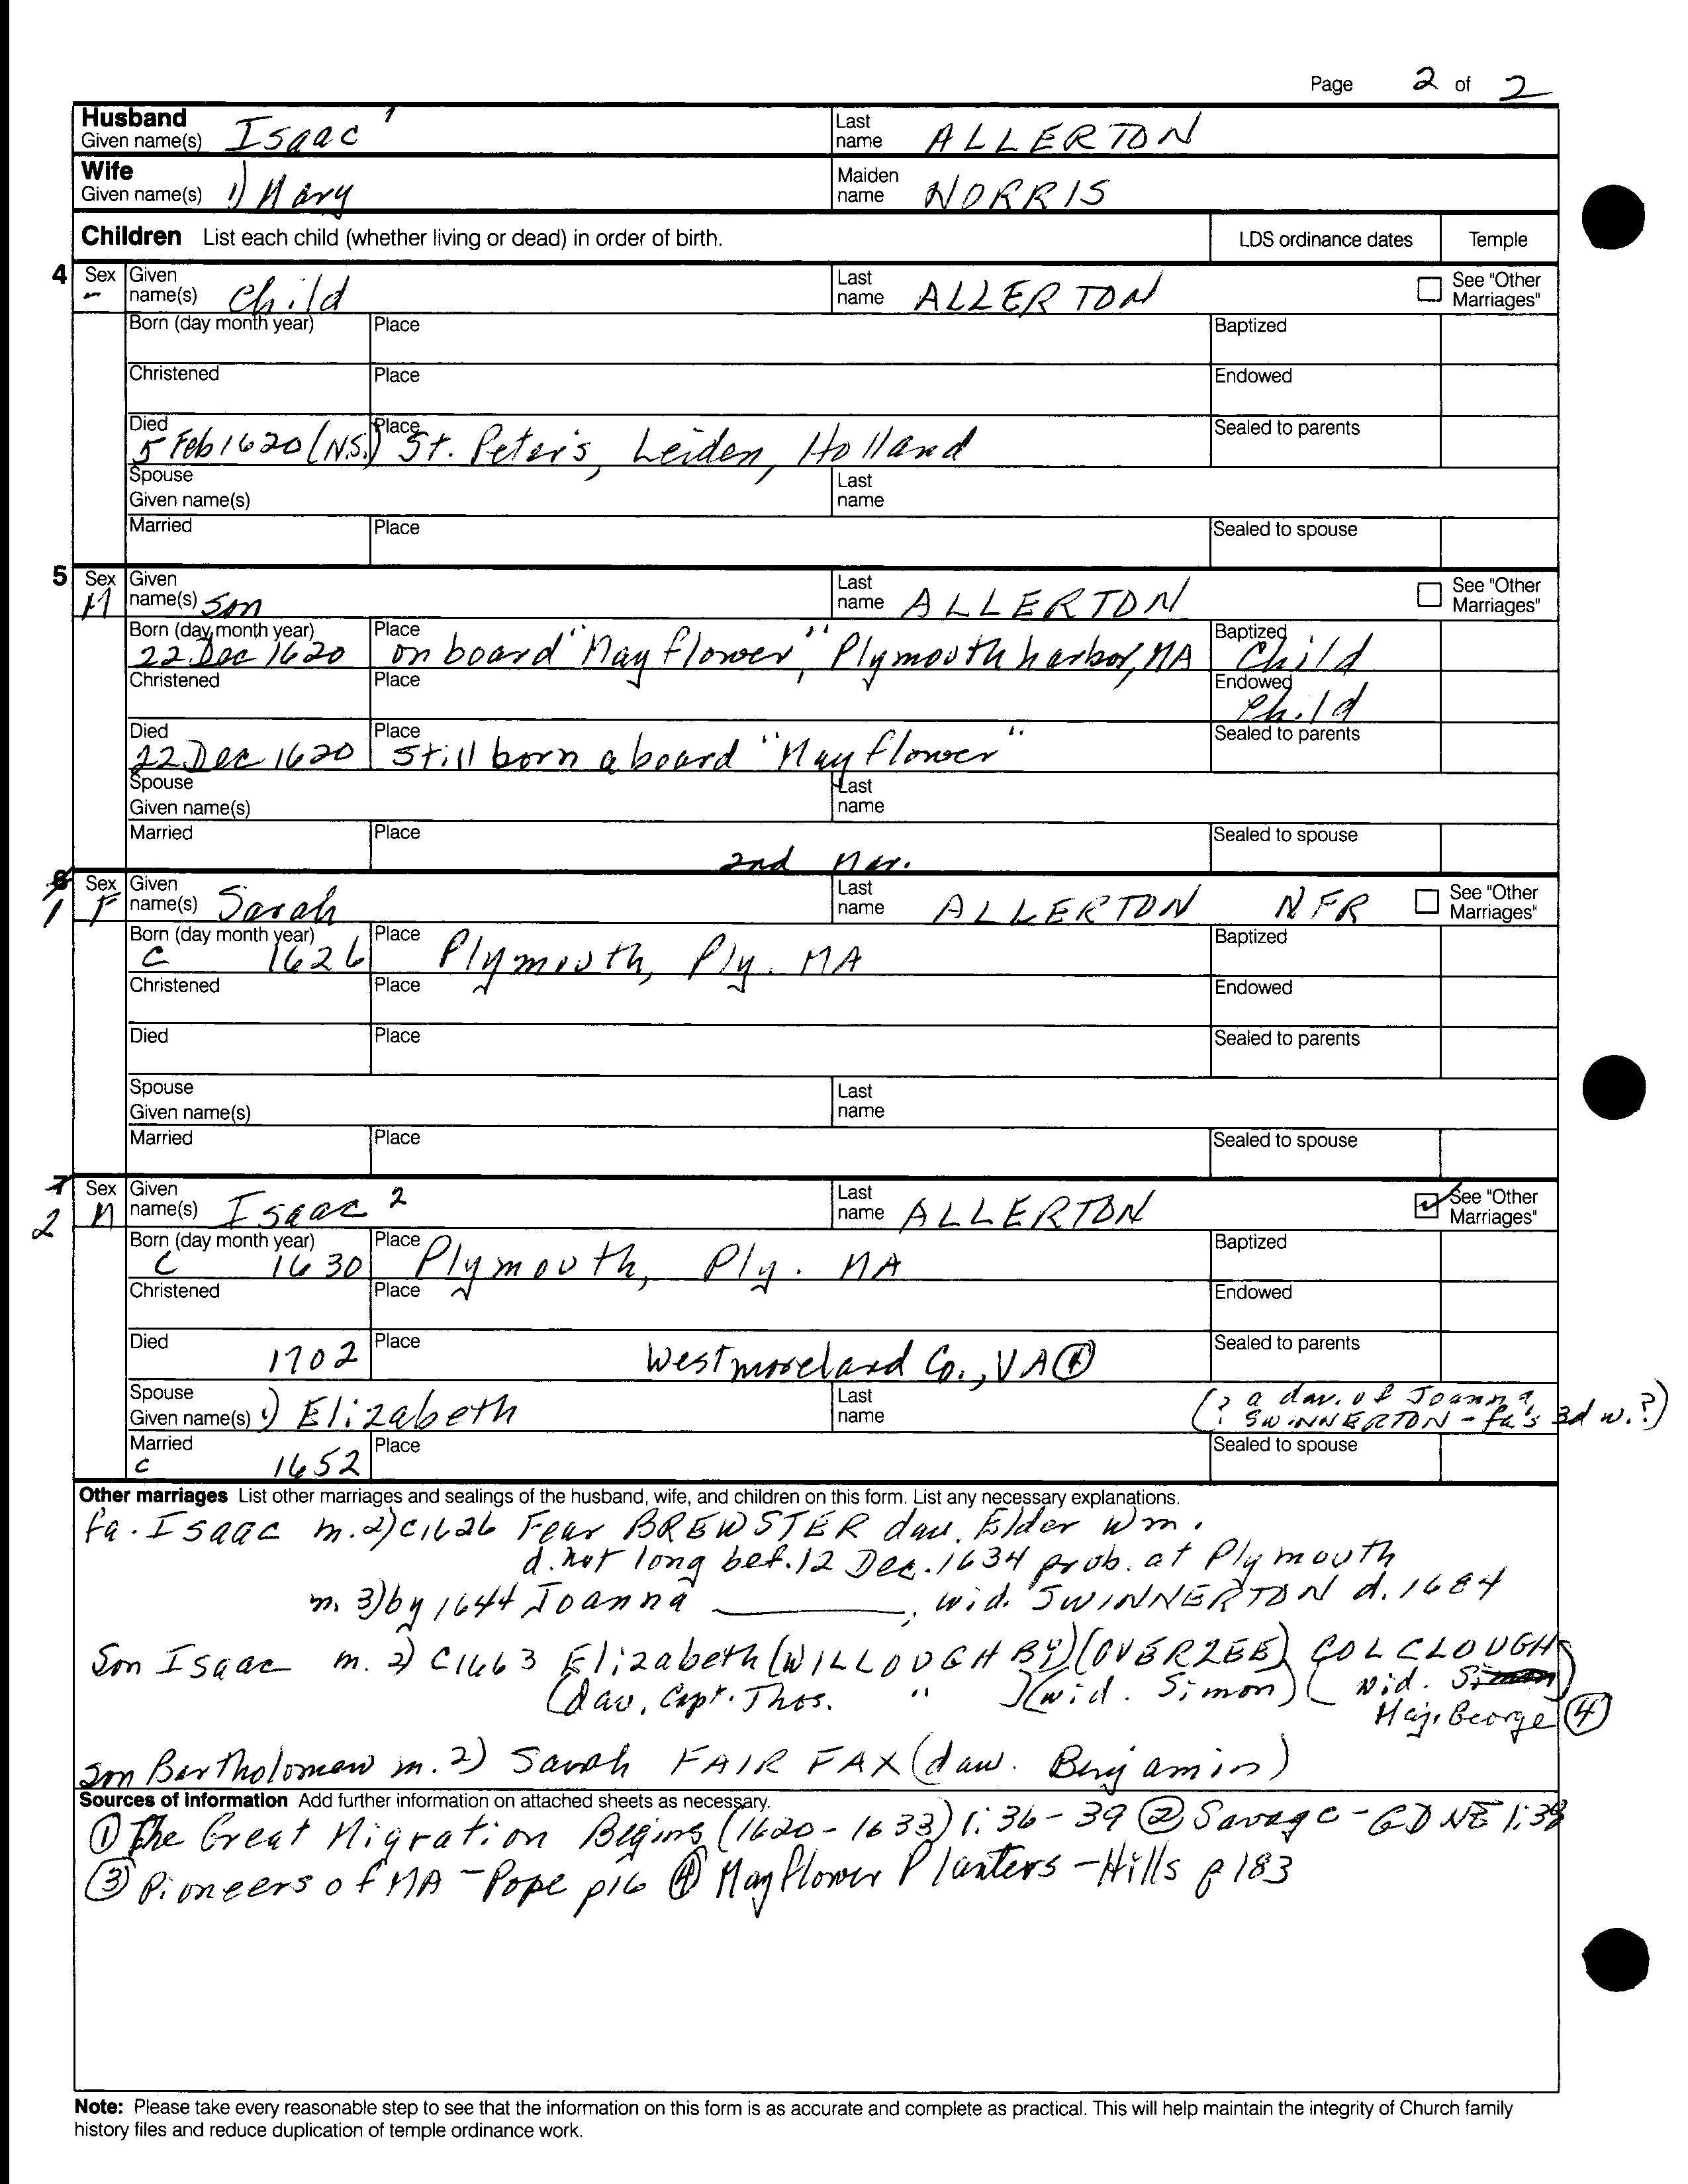 Page 2 of 2
Husband Given name(s) Isaac 1 Last name ALLERTON
Wife Given name(s) 1) Mary Maiden name NORRIS
Children List each child (whether living or dead) in order of birth. LDS ordinance dates Temple
4 Sex - Given name(s) Child Last name ALLERTON See "Other Marriages"
Born (day month year) Place Baptized
Christened Place Endowed
Died 5 Feb 1620 (N.S.) Place St. Peter's, Leiden, Holland Sealed to parents
Spouse Given name(s) Last name
Married Place Sealed to spouse
5 Sex M Given name(s) Son Last name ALLERTON See "Other Marriages"
Born (day month year) 22 Dec 1620 Place on board "Mayflower", Plymouth harbor, MA Baptized Child
Christened Place Endowed Child
Died 22 Dec 1620 Place Still born aboard "Mayflower" Sealed to parents
Spouse Given name(s) Last name
Married Place Sealed to spouse
2nd Mar.
6 1 Sex F Given name(s) Sarah Last name ALLERTON NFR See "Other Marriages"
Born (day month year) C 1626 Place Plymouth, Ply. MA Baptized
Christened Place Endowed
Died Place Sealed to parents
Spouse Given name(s) Last name
Married Place Sealed to spouse
7 2 Sex M Given name(s) Isaac 2 Last name ALLERTON See "Other Marriages"
Born (day month year) C 1630 Place Plymouth, Ply. MA Baptized
Christened Place Endowed
Died 1702 Place Westmoreland Co., VA ① Sealed to parents
Spouse Given name(s) 1) Elizabeth Last name (? a dau. of Joanna SWINNERTON - fa's 3d w.?)
Married c 1652 Place Sealed to spouse
Other marriages List other marriages and sealings of the husband, wife, and children on this form. List any necessary explanations.
fa. Isaac m. 2) C1626 Fear BREWSTER dau. Elder Wm.
d. not long bef. 12 Dec. 1634 prob. at Plymouth
m. 3) by 1644 Joanna ________, wid. SWINNERTON d. 1684
Son Isaac m. 2) C1663 Elizabeth (WILLOUGHBY) (OVERZEE) COLCLOUGH
(dau. Capt. Thos. " ) (wid. Simon) ( wid. Simon)
Maj. George ④
Son Bartholomew m. 2) Sarah FAIRFAX (dau. Benjamin)
Sources of information Add further information on attached sheets as necessary.
① The Great Migration Begins (1620-1633) 1:36-39 ② Savage - GDNE 1:38
③ Pioneers of MA - Pope p16 ④ Mayflower Planters - Hills p 183
Note: Please take every reasonable step to see that the information on this form is as accurate and complete as practical. This will help maintain the integrity of Church family
history files and reduce duplication of temple ordinance work.